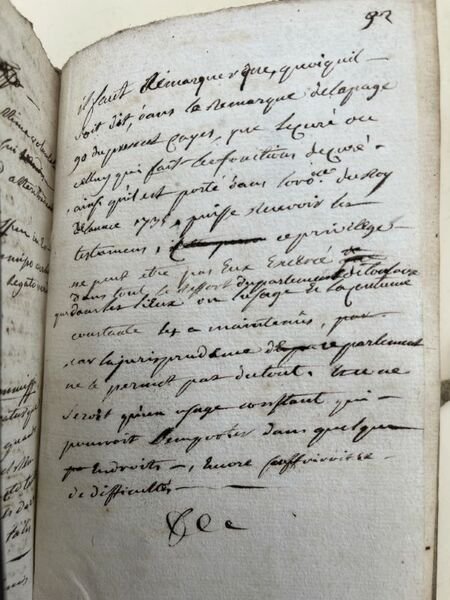 92
il faut Remarquer que, quoiquil
soit dit, dans la remarque de la page
90 du present cayer, que le curé ou
celluy qui fait les fonctions de curé
ainsi qu'il est porté dans lord.ce du Roy
de 1735, puisse recevoir les
testamens, ce privilege
ne peut etre par Eux Exercé
dans tout le ressort du parlement de toulouse
que dans les lieux ou lusage et la coutume
constante les a maintenus, par
car la jurisprudence de ce parlement
ne le permet pas du tout. Ce ne
seroit qu'un usage constant qui
pourroit l'emporter dans quelques
Endroits, Encore souffriroit il
de difficultés